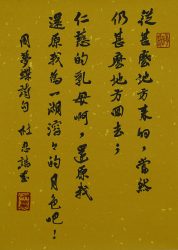 從甚麼地方來的，當然
仍甚麼地方回去；
仁慈的乳母啊，還原我
還原我為一湖溶溶的月色吧！
周夢蝶詩句 杜忠誥書